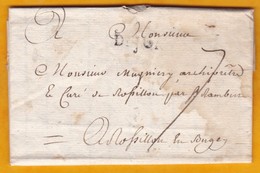 A Monsieur
B.J.G.
Monsieur Mugniery archiprêtre
& Curé de Rossillon par St Rambert
= A Rossillon en Bugey